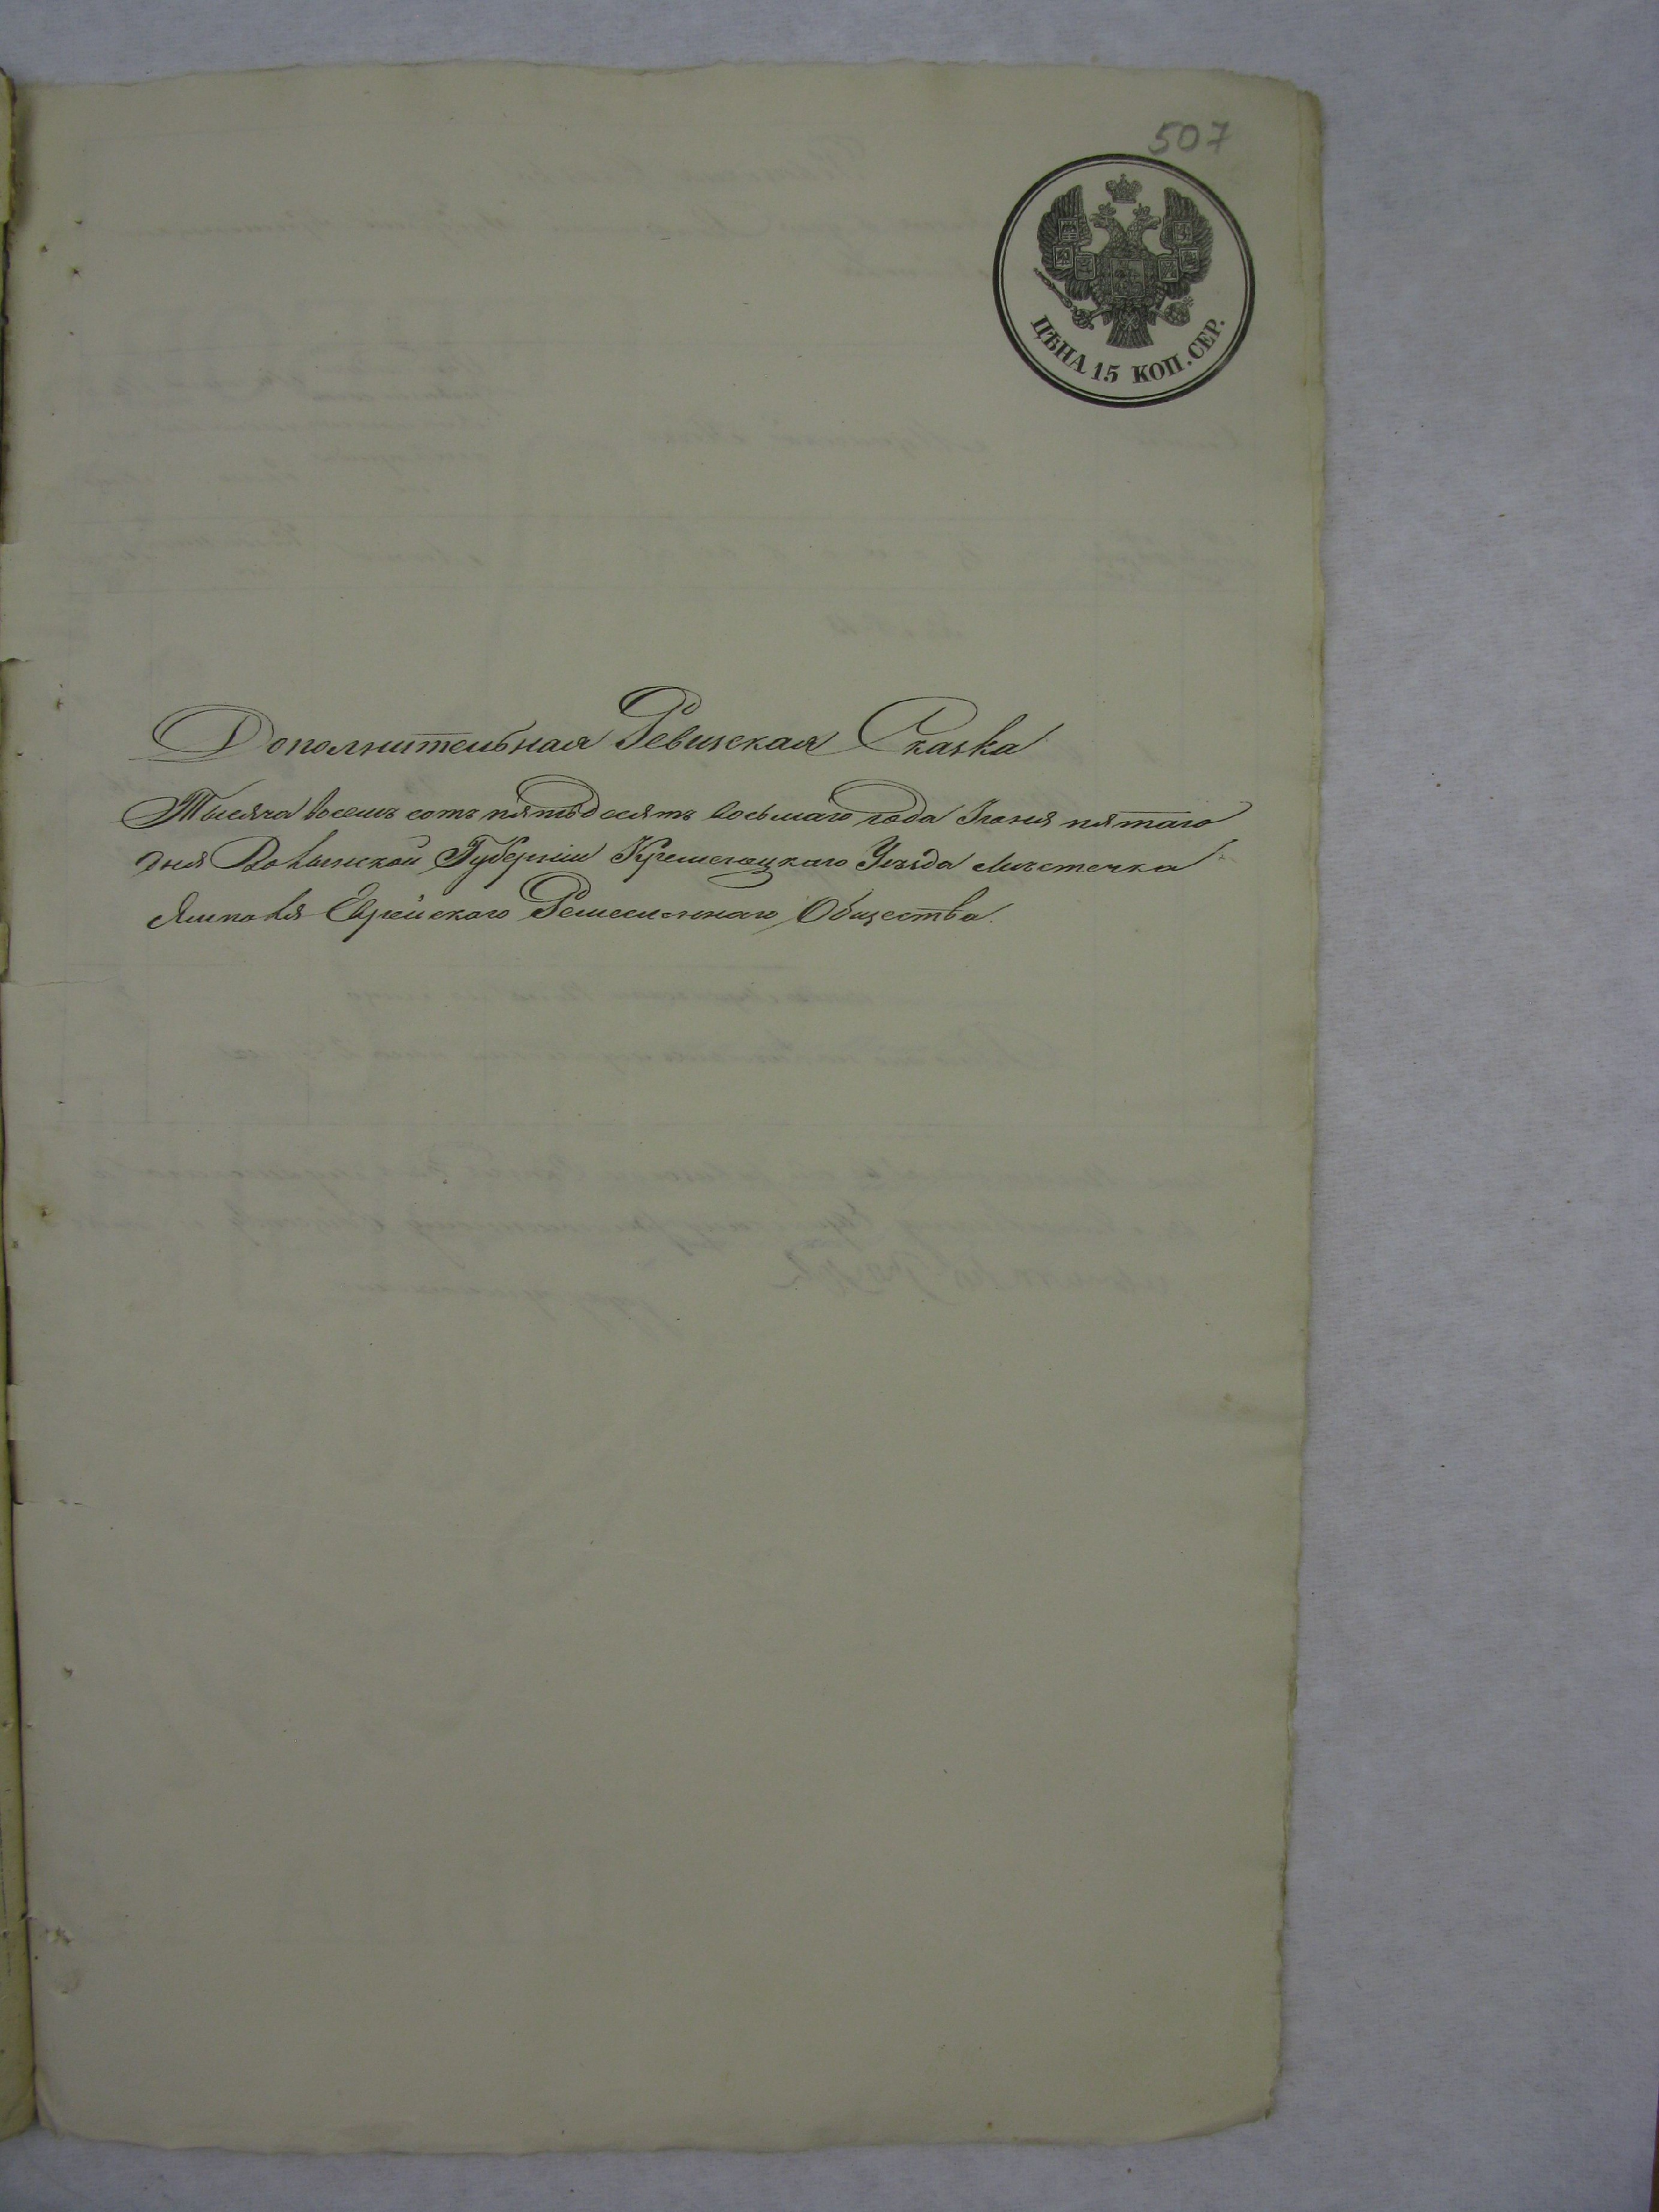 507
ЦѢНА 15 КОП. СЕР.
Дополнительная Ревизская Сказка
Тысяча восемь сотъ пятьдесятъ восьмаго года Іюня пятаго
дня Волынской Губерніи Кременецкаго Уезда Мѣстечка
Ямполя Еврейскаго Ремесленнаго Общества.